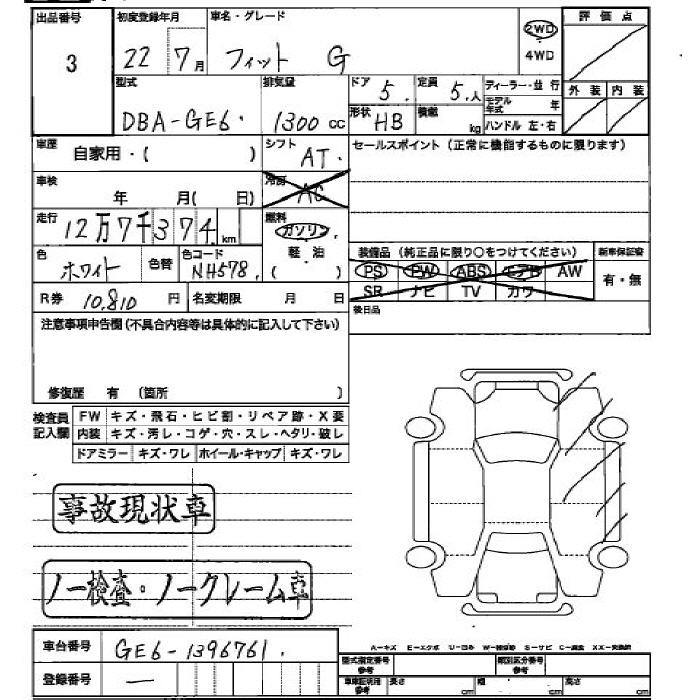 出品番号 初度登録年月 車名・グレード 評価点
3 22年 7月 フィット G 2WD 4WD
型式 排気量 ドア 定員 ディーラー・並行 外装 内装
DBA-GE6 1300cc 5 5人 モデル年式 年
形状 HB 積載 kg ハンドル 左・右
車歴 自家用・( ) シフト AT セールスポイント(正常に機能するものに限ります)
車検 年 月( 日) 冷房 AC
走行 12万7千374km 燃料 ガソリン 軽油 ( )
色 ホワイト 色替 色コード NH578 装備品(純正品に限り○をつけてください) 新車保証書
PS PW ABS エアB AW 有・無
R券 10,810円 名変期限 月 日 SR ナビ TV カワ
注意事項申告欄(不具合内容等は具体的に記入して下さい) 後日品
修復歴 有 (箇所 )
検査員記入欄 FW キズ・飛石・ヒビ割・リペア跡・X要
内装 キズ・汚レ・コゲ・穴・スレ・ヘタリ・破レ
ドアミラー キズ・ワレ ホイール・キャップ キズ・ワレ
事故現状車
ノー検査・ノークレーム車
車台番号 GE6-1396761 A-キズ E-エクボ U-ヨネ S-サビ
登録番号 — 型式指定番号 参考 類別区分番号 参考
車庫証明用 参考 長さ cm 幅 cm 高さ cm